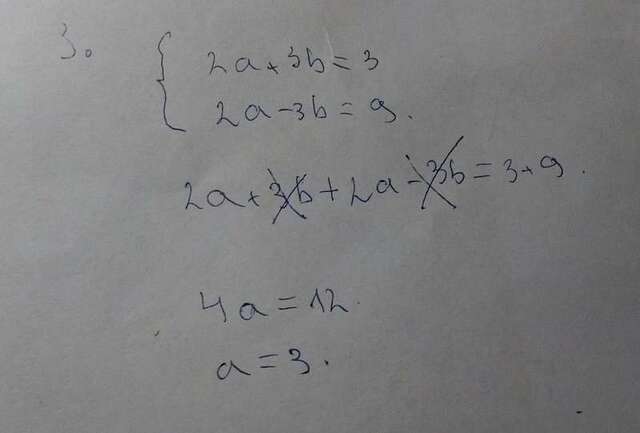 3.
2a+3b=3
2a-3b=9.
2a+3b+2a-3b=3+9.
4a=12.
a=3.